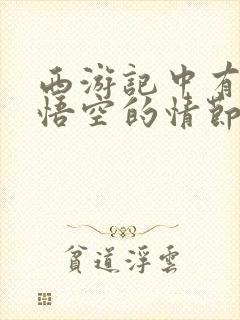 西游記中有
悟空的情節
貧道浮雲